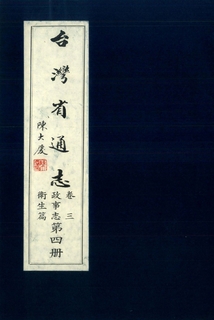 台灣省通志
陳大慶
卷三
政事志
衛生篇
第四册